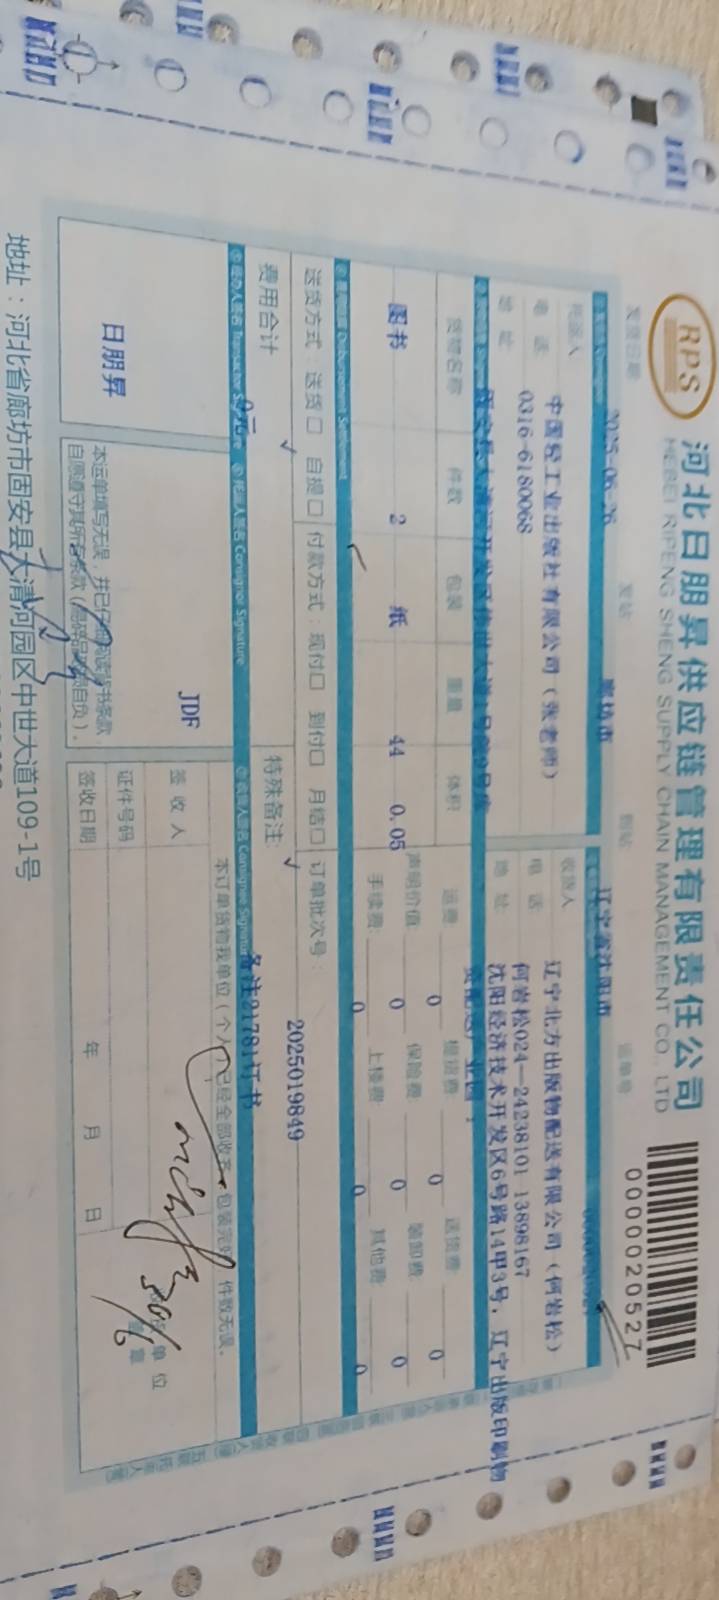 RPS
河北日朋昇供应链管理有限责任公司
HEBEI RIPENG SHENG SUPPLY CHAIN MANAGEMENT CO., LTD
0000020527
发货日期 2025-06-26 发站 廊坊市 到站 辽宁省沈阳市 运单号
托运人 中国轻工业出版社有限公司（张老师）
电 话 0316-6180068
地 址
收货人 辽宁北方出版物配送有限公司（何岩松）
电 话 何岩松024—24238101 13898167
地 址 沈阳经济技术开发区6号路14甲3号，辽宁出版印刷物
资配送产业园
货物名称 件数 包装 重量 体积
图书 2 纸 44 0.05
运费: 0 提货费: 0 送货费: 0
声明价值: 0 保险费: 0 装卸费: 0
手续费: 0 上楼费: 0 其他费: 0
Disbursement Settlement
送货方式：送货口 自提口 付款方式：现付口 到付口 月结口 订单批次号： 2025019849
费用合计 特殊备注: 备注21781订书
Consignor Signature
Consignee Signature
日朋昇
JDF
本订单货物我单位（个人）已经全部收齐，包装完好，件数无误。
签 收 人
证件号码
签收日期 年 月 日
30/6
地址：河北省廊坊市固安县大清河园区中世大道109-1号